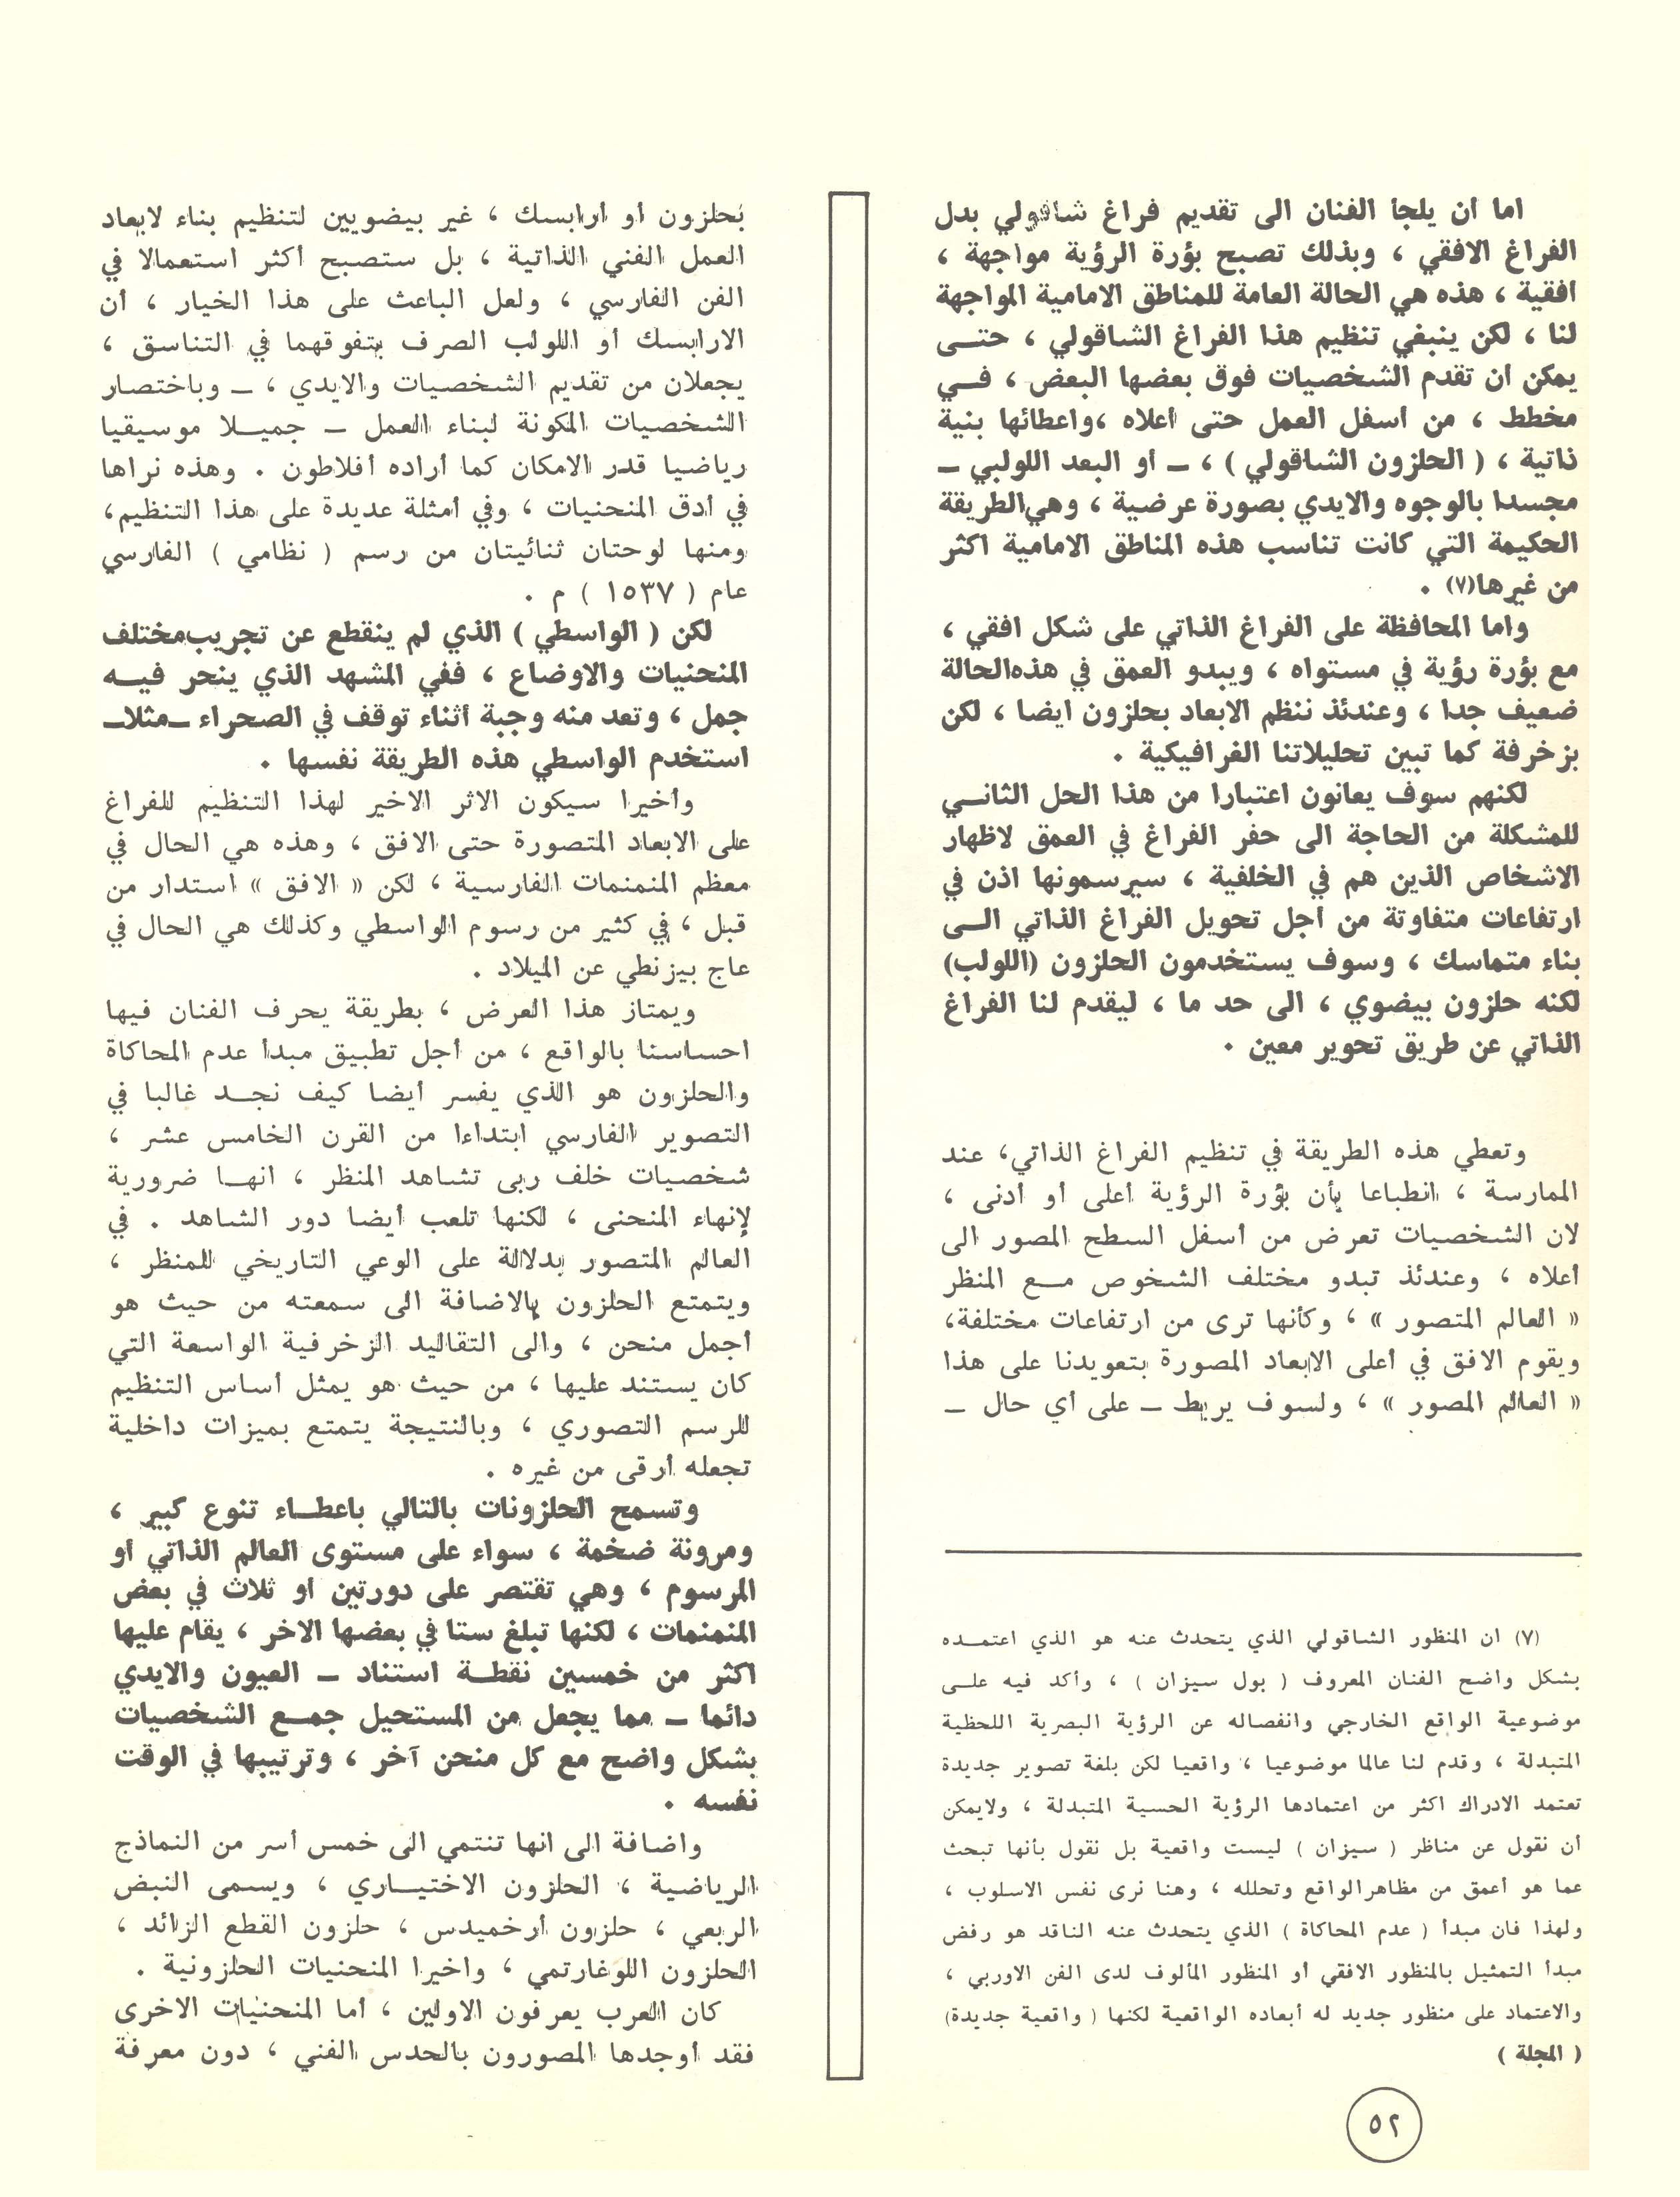 اما أن يلجأ الفنان الى تقديم فراغ شاقولي بدل
الفراغ الافقي ، وبذلك تصبح بؤرة الرؤية مواجهة ،
أفقية ، هذه هي الحالة العامة للمناطق الامامية المواجهة
لنا ، لكن ينبغي تنظيم هذا الفراغ الشاقولي ، حتــى
يمكن أن تقدم الشخصيات فوق بعضها البعض ، فــي
مخطط ، من أسفل العمل حتى أعلاه ،واعطائها بنية
ذاتية ، ( الحلزون الشاقولي ) ، ـ أو البعد اللولبي ـ
مجسدا بالوجوه والايدي بصورة عرضية ، وهي الطريقة
الحكيمة التي كانت تناسب هذه المناطق الامامية اكثر
من غيرها(٧) .
واما المحافظة على الفراغ الذاتي على شكل افقي ،
مع بؤرة رؤية في مستواه ، ويبدو العمق في هذه الحالة
ضعيف جدا ، وعندئذ ننظم الابعاد بحلزون ايضا ، لكن
بزخرفة كما تبين تحليلاتنا الغرافيكية .
لكنهم سوف يعانون اعتبارا من هذا الحل الثانــي
للمشكلة من الحاجة الى حفر الفراغ في العمق لاظهار
الاشخاص الذين هم في الخلفية ، سيرسمونها اذن في
ارتفاعات متفاوتة من أجل تحويل الفراغ الذاتي الــى
بناء متماسك ، وسوف يستخدمون الحلزون (اللولب)
لكنه حلزون بيضوي ، الى حد ما ، ليقدم لنا الفراغ
الذاتي عن طريق تحوير معين .
وتعطي هذه الطريقة في تنظيم الفراغ الذاتي، عند
الممارسة ، انطباعا بأن بؤرة الرؤية أعلى أو أدنى ،
لان الشخصيات تعرض من أسفل السطح المصور الى
أعلاه ، وعندئذ تبدو مختلف الشخوص مــع المنظر
« العالم المتصور » ، وكأنها ترى من ارتفاعات مختلفة،
ويقوم الافق في أعلى الابعاد المصورة بتعويدنا على هذا
« العالم المصور » ، ولسوف يربط ـ على أي حال ـ
(٧) ان المنظور الشاقولي الذي يتحدث عنه هو الذي اعتمــده
بشكل واضح الفنان المعروف ( بول سيزان ) ، وأكد فيه علــى
موضوعية الواقع الخارجي وانفصاله عن الرؤية البصرية اللحظية
المتبدلة ، وقدم لنا عالما موضوعيا ، واقعيا لكن بلغة تصوير جديدة
تعتمد الادراك اكثر من اعتمادها الرؤية الحسية المتبدلة ، ولايمكن
أن نقول عن مناظر ( سيزان ) ليست واقعية بل نقول بأنها تبحث
عما هو أعمق من مظاهر الواقع وتحلله ، وهنا نرى نفس الاسلوب ،
ولهذا فان مبدأ ( عدم المحاكاة ) الذي يتحدث عنه الناقد هو رفض
مبدأ التمثيل بالمنظور الافقي أو المنظور المألوف لدى الفن الاوربي ،
والاعتماد على منظور جديد له أبعاده الواقعية لكنها ( واقعية جديدة)
( المجلة )
بحلزون أو أرابسك ، غير بيضويين لتنظيم بناء لابعاد
العمل الفني الذاتية ، بل ستصبح أكثر استعمالا في
الفن الفارسي ، ولعل الباعث على هذا الخيار ، أن
الارابسك أو اللولب الصرف بتفوقهما في التناسق ،
يجعلان من تقديم الشخصيات والايدي ، ـ وباختصار
الشخصيات المكونة لبناء العمل ـ جميــلا موسيقيا
رياضيا قدر الامكان كما أراده أفلاطون . وهذه نراها
في أدق المنحنيات ، وفي أمثلة عديدة على هذا التنظيم،
ومنها لوحتان ثنائيتان من رسم ( نظامي ) الفارسي
عام ( ١٥٣٧ ) م .
لكن ( الواسطي ) الذي لم ينقطع عن تجريب مختلف
المنحنيات والاوضاع ، ففي المشهد الذي ينحر فيــه
جمل ، وتعد منه وجبة أثناء توقف في الصحراء ـمثلاـ
استخدم الواسطي هذه الطريقة نفسها .
وأخيرا سيكون الاثر الاخير لهذا التنظيم للفراغ
على الابعاد المتصورة حتى الافق ، وهذه هي الحال في
معظم المنمنمات الفارسية ، لكن « الافق » استدار من
قبل ، في كثير من رسوم الواسطي وكذلك هي الحال في
عاج بيزنطي عن الميلاد .
ويمتاز هذا العرض ، بطريقة يحرف الفنان فيها
احساسنا بالواقع ، من أجل تطبيق مبدأ عدم المحاكاة
والحلزون هو الذي يفسر أيضا كيف نجــد غالبا في
التصوير الفارسي ابتداءا من القرن الخامس عشر ،
شخصيات خلف ربى تشاهد المنظر ، انهــا ضرورية
لإنهاء المنحنى ، لكنها تلعب أيضا دور الشاهد . في
العالم المتصور بدلالة على الوعي التاريخي للمنظر ،
ويتمتع الحلزون بالاضافة الى سمعته من حيث هو
أجمل منحن ، والى التقاليد الزخرفية الواسعة التي
كان يستند عليها ، من حيث هو يمثل أساس التنظيم
للرسم التصوري ، وبالنتيجة يتمتع بميزات داخلية
تجعله أرقى من غيره .
وتسمح الحلزونات بالتالي باعطــاء تنوع كبير ،
ومرونة ضخمة ، سواء على مستوى العالم الذاتي أو
المرسوم ، وهي تقتصر على دورتين أو ثلاث في بعض
المنمنمات ، لكنها تبلغ ستا في بعضها الاخر ، يقام عليها
اكثر من خمسين نقطــة استناد ـ العيون والايدي
دائما ـ مما يجعل من المستحيل جمــع الشخصيات
بشكل واضح مع كل منحن آخر ، وترتيبها في الوقت
نفسه .
واضافة الى انها تنتمي الى خمس أسر من النماذج
الرياضية ، الحلزون الاختيــاري ، ويسمى النبض
الربعي ، حلزون أرخميدس ، حلزون القطع الزائد ،
الحلزون اللوغارتمي ، واخيرا المنحنيات الحلزونية .
كان العرب يعرفون الاولين ، أما المنحنيات الاخرى
فقد أوجدها المصورون بالحدس الفني ، دون معرفة
٥٢